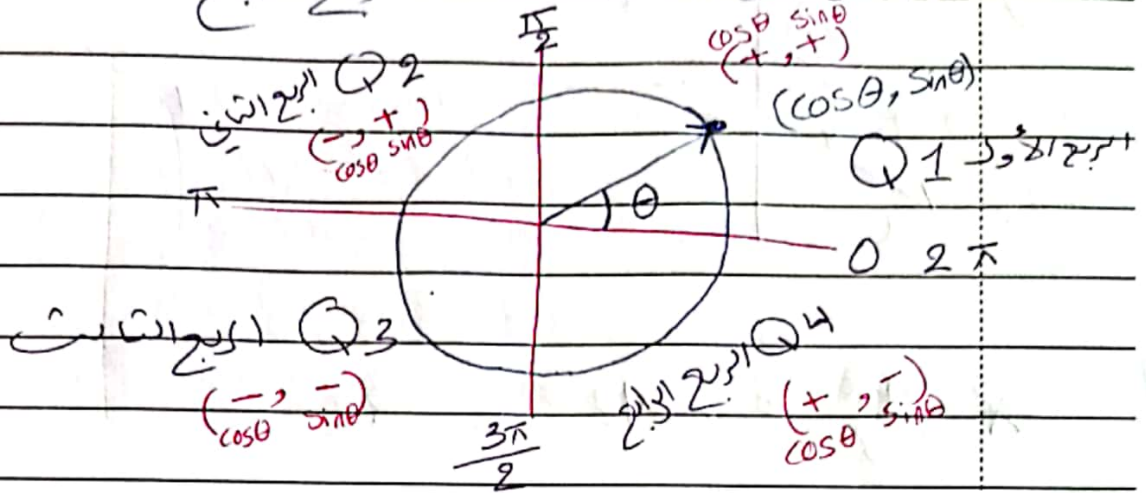 π/2
cosθ sinθ
(+ , +)
(cosθ, sinθ)
Q2 الربع الثاني
(- , +)
cosθ sinθ
Q1 الربع الأول
π
θ
0 2π
Q3 الربع الثالث
(- , -)
cosθ sinθ
Q4 الربع الرابع
(+ , -)
cosθ sinθ
3π/2